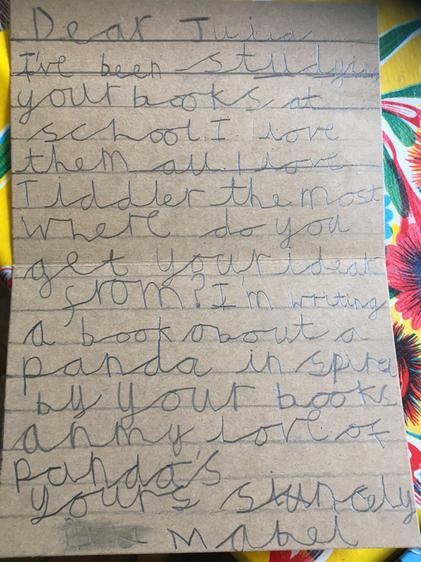 Dear Julia
I've been studying
your books at
school. I love
them all. I love
Tiddler the most
where do you
get your ideas
from? I'm writing
a book obout a
panda in spired
by your books
an my love of
panda's
yours sincely
Mabel